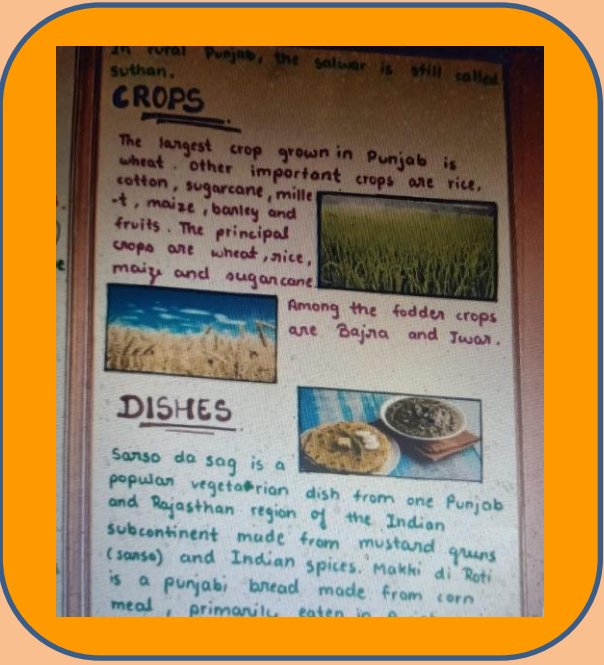 In rural Punjab, the salwar is still called
suthan.
CROPS
The largest crop grown in Punjab is
wheat. Other important crops are rice,
cotton, sugarcane, mille
-t, maize, barley and
fruits. The principal
crops are wheat, rice,
maize and sugarcane.
Among the fodder crops
are Bajra and Jwar.
DISHES
Sarso da sag is a
popular vegetarian dish from one Punjab
and Rajasthan region of the Indian
subcontinent made from mustard gruns
(sarso) and Indian spices. Makki di Roti
is a punjabi bread made from corn
meal, primarily eaten in